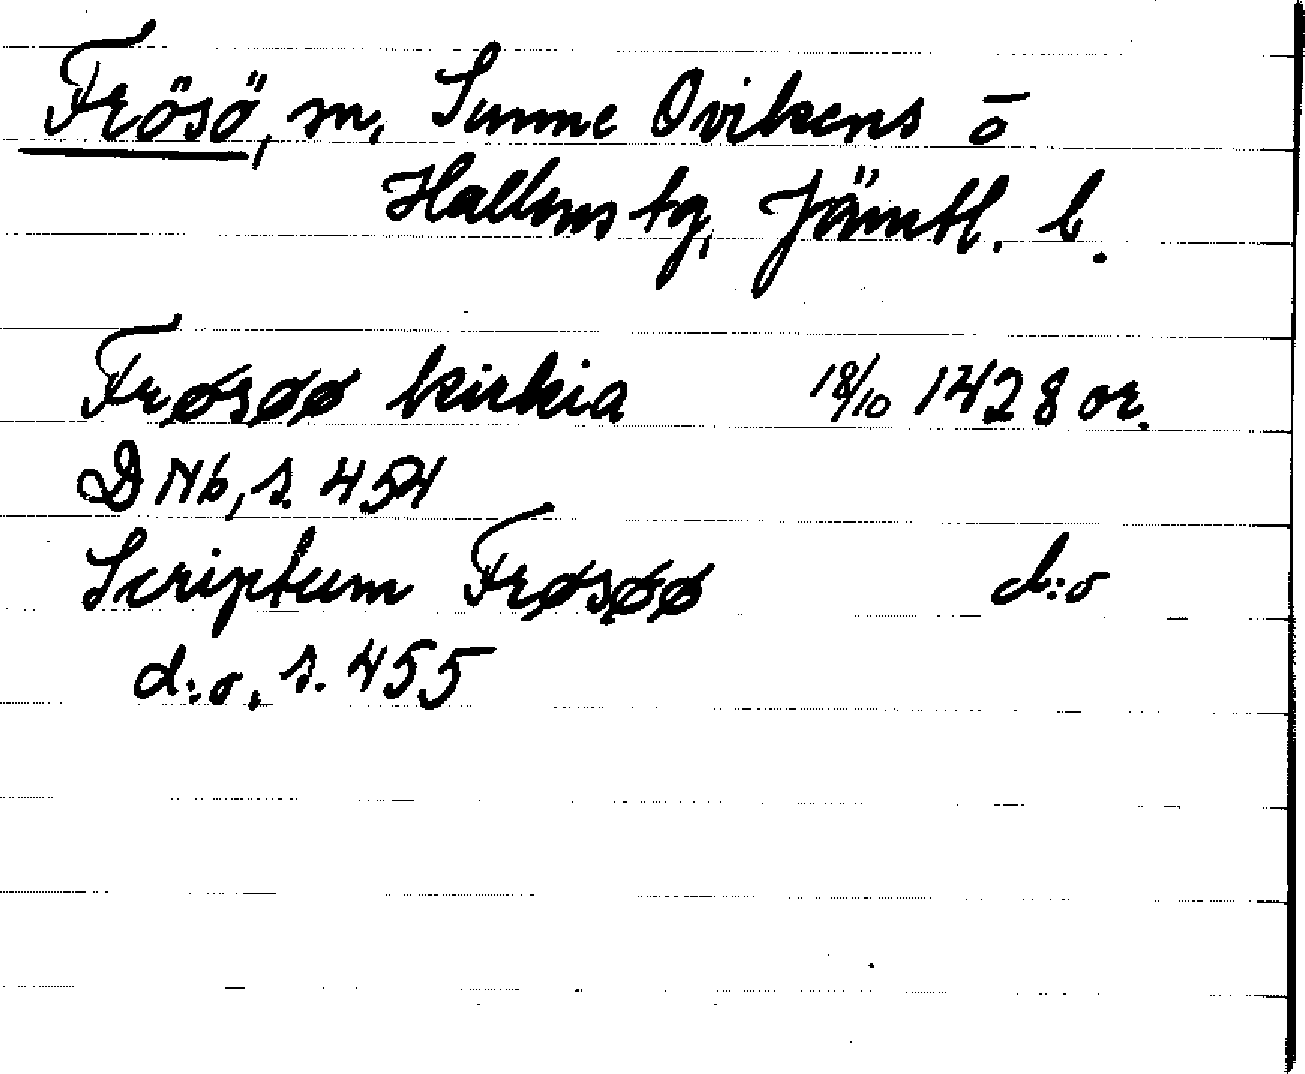 Frösö, sn, Sunne Ovikens o
Hallens tg, Jämtl. l.
Frøsøø kirkia 18/10 1428 or.
DN 16, s. 454
Scriptum Frøsøø d:o
d:o, s. 455